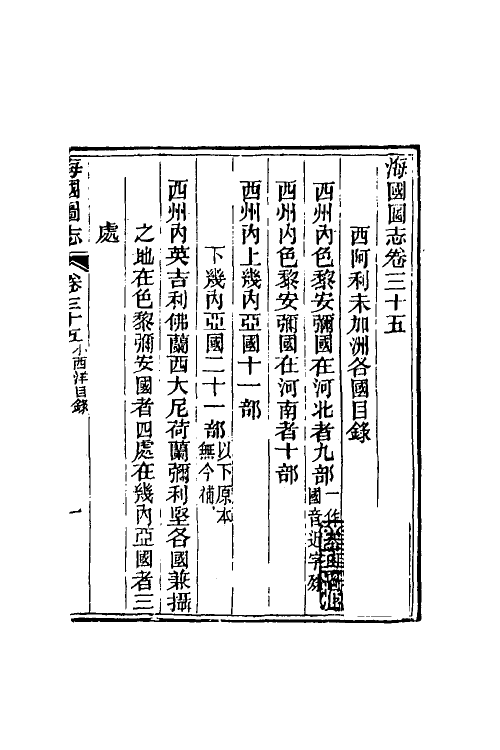 海國圖志卷三十五
西阿利未加洲各國目錄
西州內色黎安彌國在河北者九部一作
國音近字殊
西州內色黎安彌國在河南者十部
西州內上幾內亞國十一部
下幾內亞國二十一部以下原本
無今補
西州內英吉利佛蘭西大尼荷蘭彌利堅各國兼攝
之地在色黎彌安國者四處在幾內亞國者三
處
海國圖志
卷三十五小西洋目錄
一